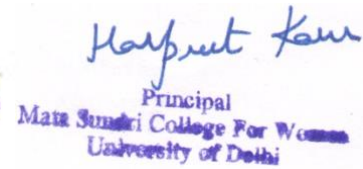 Harpreet Kaur
Principal
Mata Sundri College For Women
University of Delhi